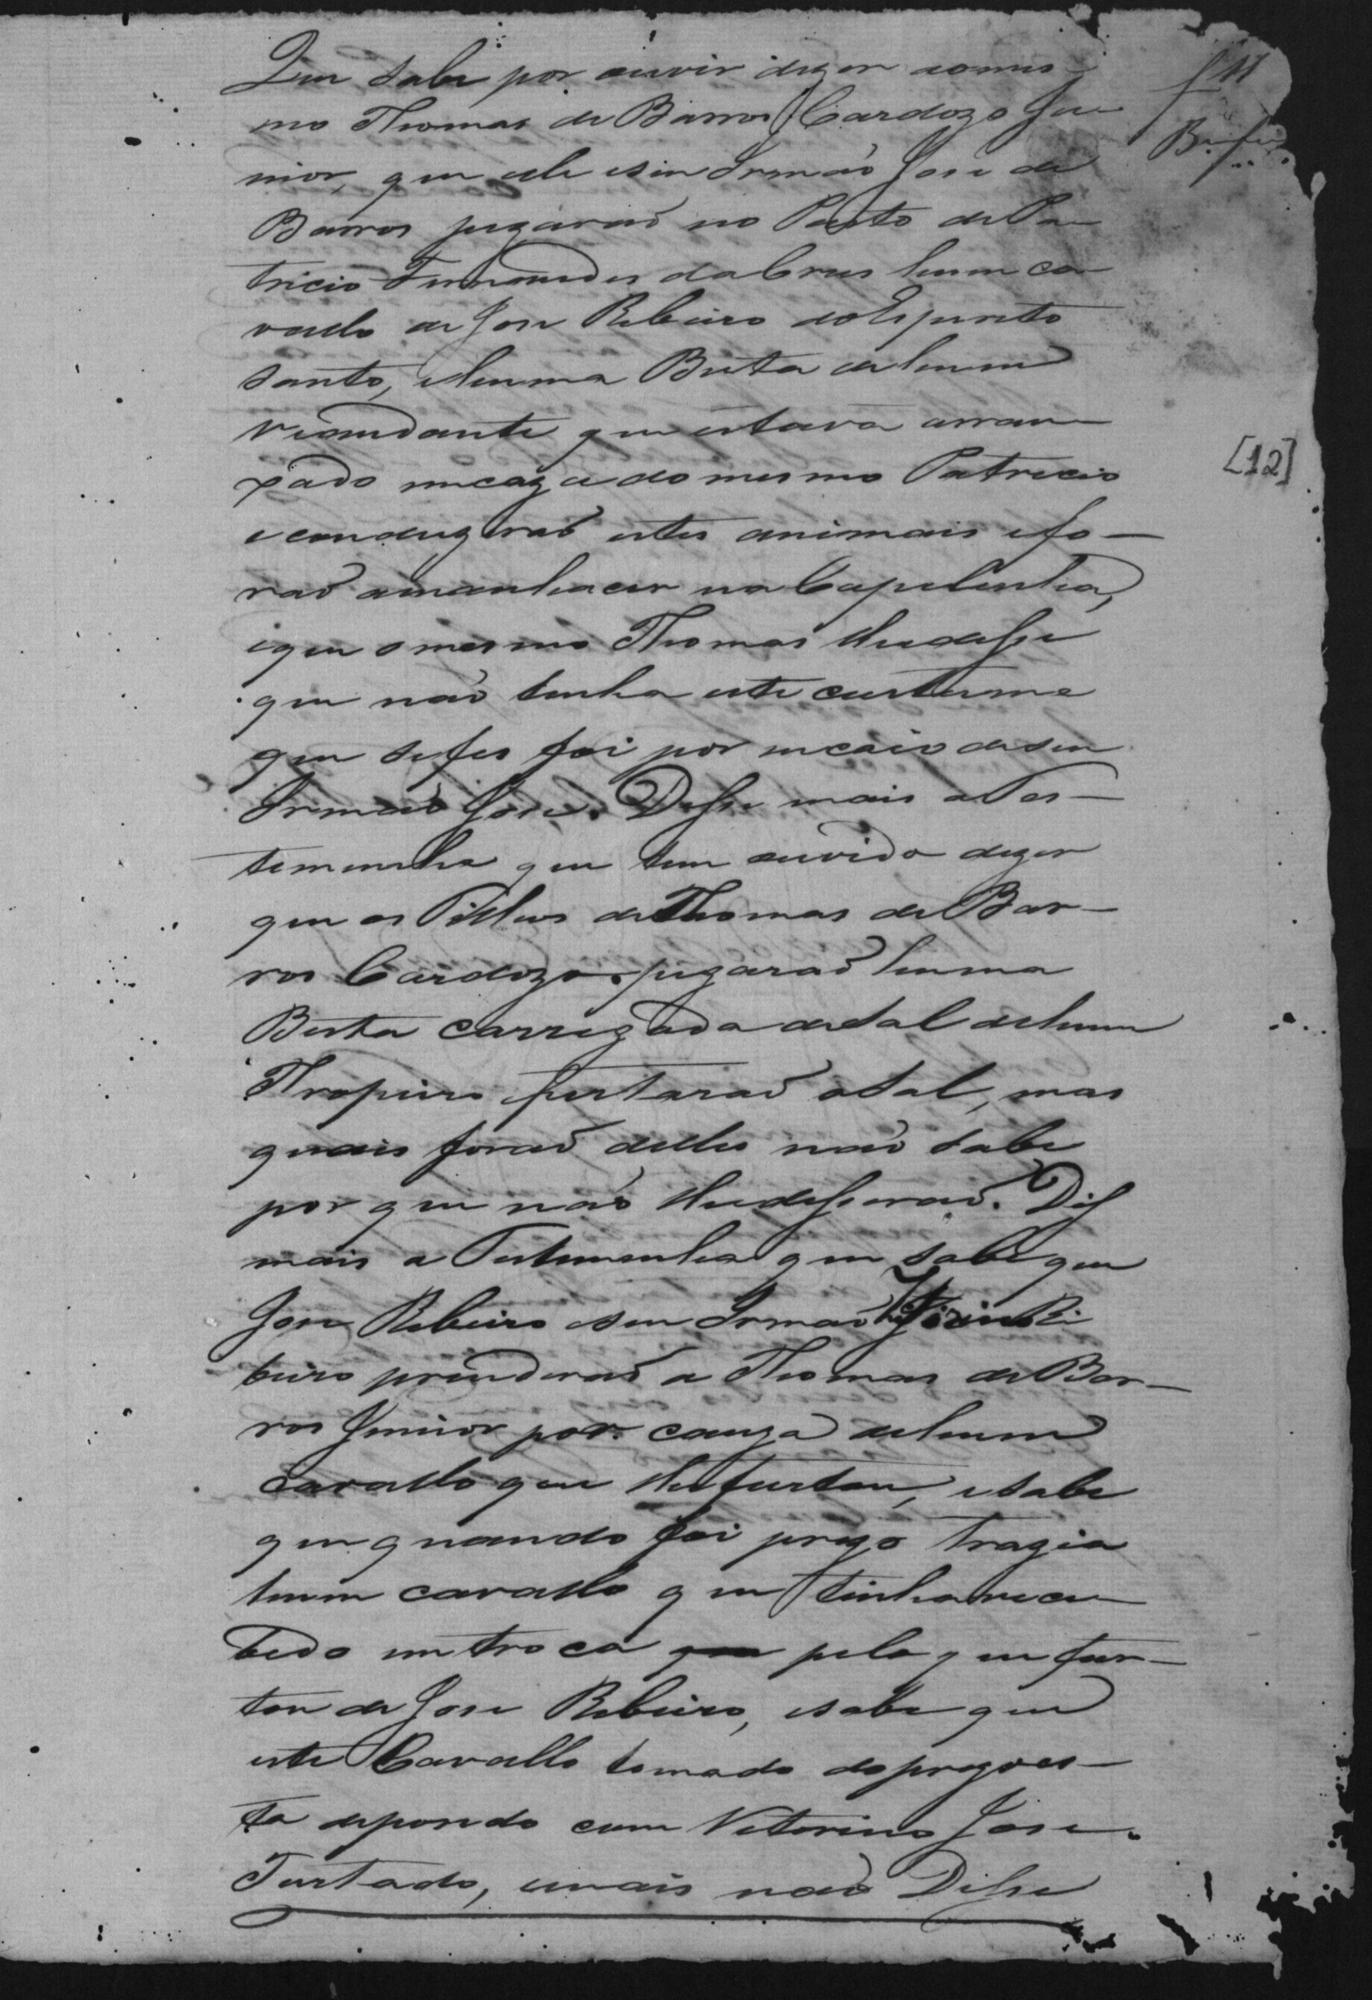 Que sabe por ouvir dizer ao mes-
mo Thomas de Barros Cardozo Ju-
nior, que elle e seu Irmaõ José de
Barros pegaraõ no Pasto de Pa-
tricio Fernandes da Crus hum ca-
vallo de Jose Ribeiro do Espirito
Santo, e huma Besta de hum
viandante que estava arran-
xado em caza do mesmo Patricio
e conduziraõ estes animais e fo-
raõ amanhecer na Capelinha,
e que o mesmo Thomas lhe disse
que naõ tinha este custume
que se fes foi por incaio de seu
Irmaõ José. Disse mais a Tes-
temunha que tem ouvido dizer
que os Filhos de Thomas de Bar-
ros Cardozo pegaraõ huma
Besta carregada de Sal de hum
Tropeiro furtaraõ o Sal, mas
quais foraõ delles naõ sabe
por que naõ lhe disseraõ. Dis
mais a Testemunha que sabe que
Jose Ribeiro e seu Irmaõ Ri-
beiro prenderaõ a Thomas de Bar-
ros Junior por cauza de hum
cavallo que lhe furtou, e sabe
que quando foi prezo trazia
hum cavallo que tinha rece-
bedo em troca pelo que fur-
tou de Jose Ribeiro, e sabe que
este Cavallo tomado do prezo es-
ta depondo com Vitorino Jose
Furtado, e mais naõ Disse
f 11
[12]